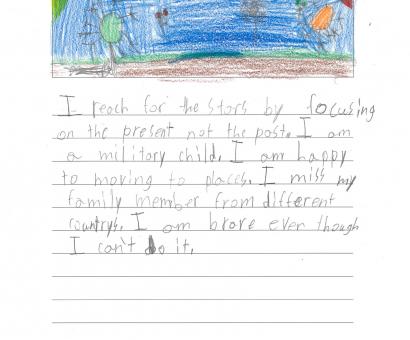 I reach for the stars by focusing
on the present not the past. I am
a military child. I am happy
to moving to places. I miss my
family member from different
countrys. I am brave even though
I can't do it.